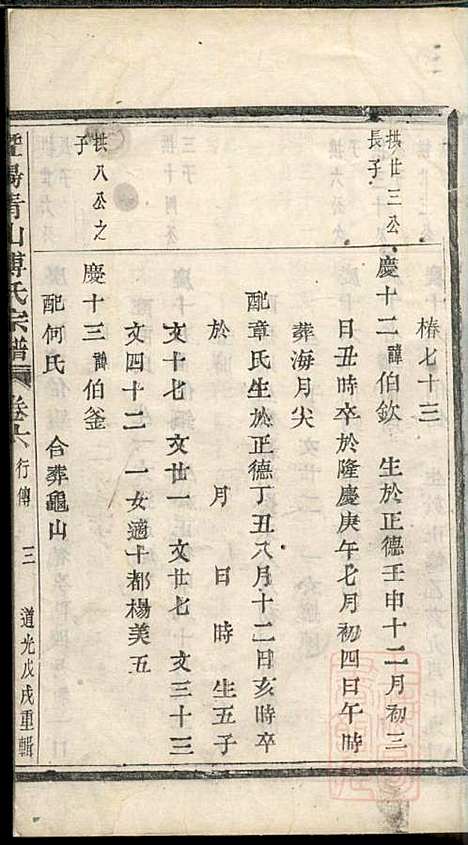 椿七十三
拱廿三公
長子
慶十二諱伯欽 生於正德壬申十二月初三
日丑時卒於隆慶庚午七月初四日午時
葬海月尖
配章氏生於正德丁丑八月十二日亥時卒
於 月 日 時 生五子
文十七 文廿一 文廿七 文三十三
文四十二 一女適十都楊美五
拱八公之
子
慶十三諱伯釜
配何氏 合葬龜山
暨陽青山傅氏宗譜 卷十六 行傳 三 道光戊戌重輯